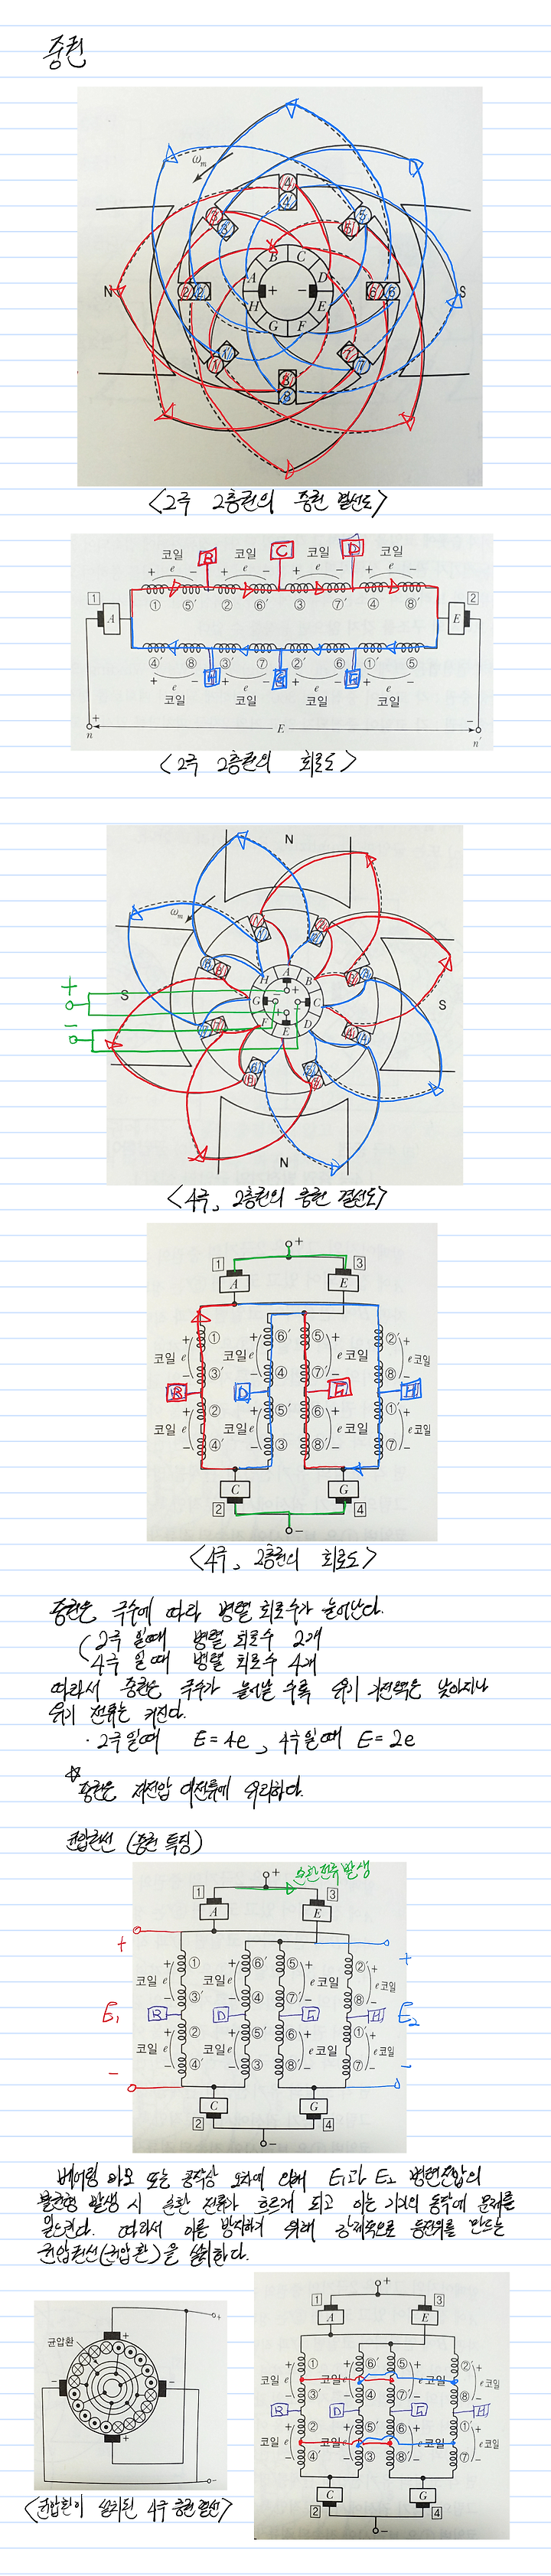 중권
ωm
N
S
B C
A D
H E
G F
+ −
<2극 2층권의 중권 결선도>
코일 코일 코일 코일
B C D
+ e − + e − + e − + e −
① ⑤′ ② ⑥′ ③ ⑦′ ④ ⑧′
1 A E 2
④′ ⑧ ③′ ⑦ ②′ ⑥ ①′ ⑤
+ e − + e − + e − + e −
코일 코일 코일 코일
+ E −
n n′
<2극 2층권의 회로도>
N
ωm
S S
H A B
G C
F E D
+
−
N
<4극, 2층권의 중권 결선도>
+
1 3
A E
① ⑥′ ⑤ ②′
코일 e 코일 e e 코일 e 코일
③′ ④ ⑦′ ⑧
B D H
② ⑤′ ⑥ ①′
코일 e 코일 e e 코일 e 코일
④′ ③ ⑧′ ⑦
C G
2 4
−
<4극, 2층권의 회로도>
중권은 극수에 따라 병렬 회로수가 늘어난다.
2극 일때 병렬 회로수 2개
4극 일때 병렬 회로수 4개
따라서 중권은 극수가 늘어날 수록 유기 기전력은 낮아지나
유기 전류는 커진다.
· 2극일때 E=4e, 4극일때 E=2e
☆
중권은 저전압 대전류에 유리하다.
균압환선 (중권 특징)
순환전류 발생
+
1 3
A E
+ +
① ⑥′ ⑤ ②′
코일 e 코일 e e 코일 e 코일
③′ ④ ⑦′ ⑧
E₁ B D H E₂
② ⑤′ ⑥ ①′
코일 e 코일 e e 코일 e 코일
④′ ③ ⑧′ ⑦
− −
C G
2 4
−
베어링 마모 또는 공작상 오차에 의해 E₁과 E₂ 병렬전압의
불균형 발생 시 순환 전류가 흐르게 되고 이는 기기의 동작에 문제를
일으킨다. 따라서 이를 방지하기 위해 강제적으로 등전위를 만드는
균압환선(균압환)을 설치한다.
균압환
+
−
<균압환이 설치된 4극 중권 결선>
+
1 3
A E
① ⑥′ ⑤ ②′
코일 e 코일 e e 코일 e 코일
③′ ④ ⑦′ ⑧
B D H
② ⑤′ ⑥ ①′
코일 e 코일 e e 코일 e 코일
④′ ③ ⑧′ ⑦
C G
2 4
−